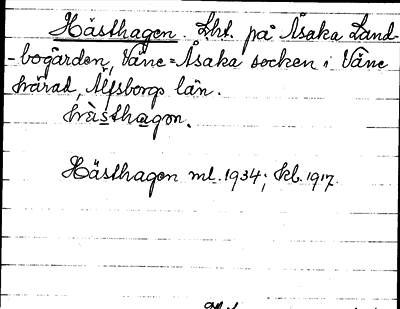 Hästhagen. Lht. på Åsaka Land-
-bogården, Väne-Åsaka socken i Väne
härad, Älfsborgs län.
hästhagən.
Hästhagen ml. 1934; kb. 1917.